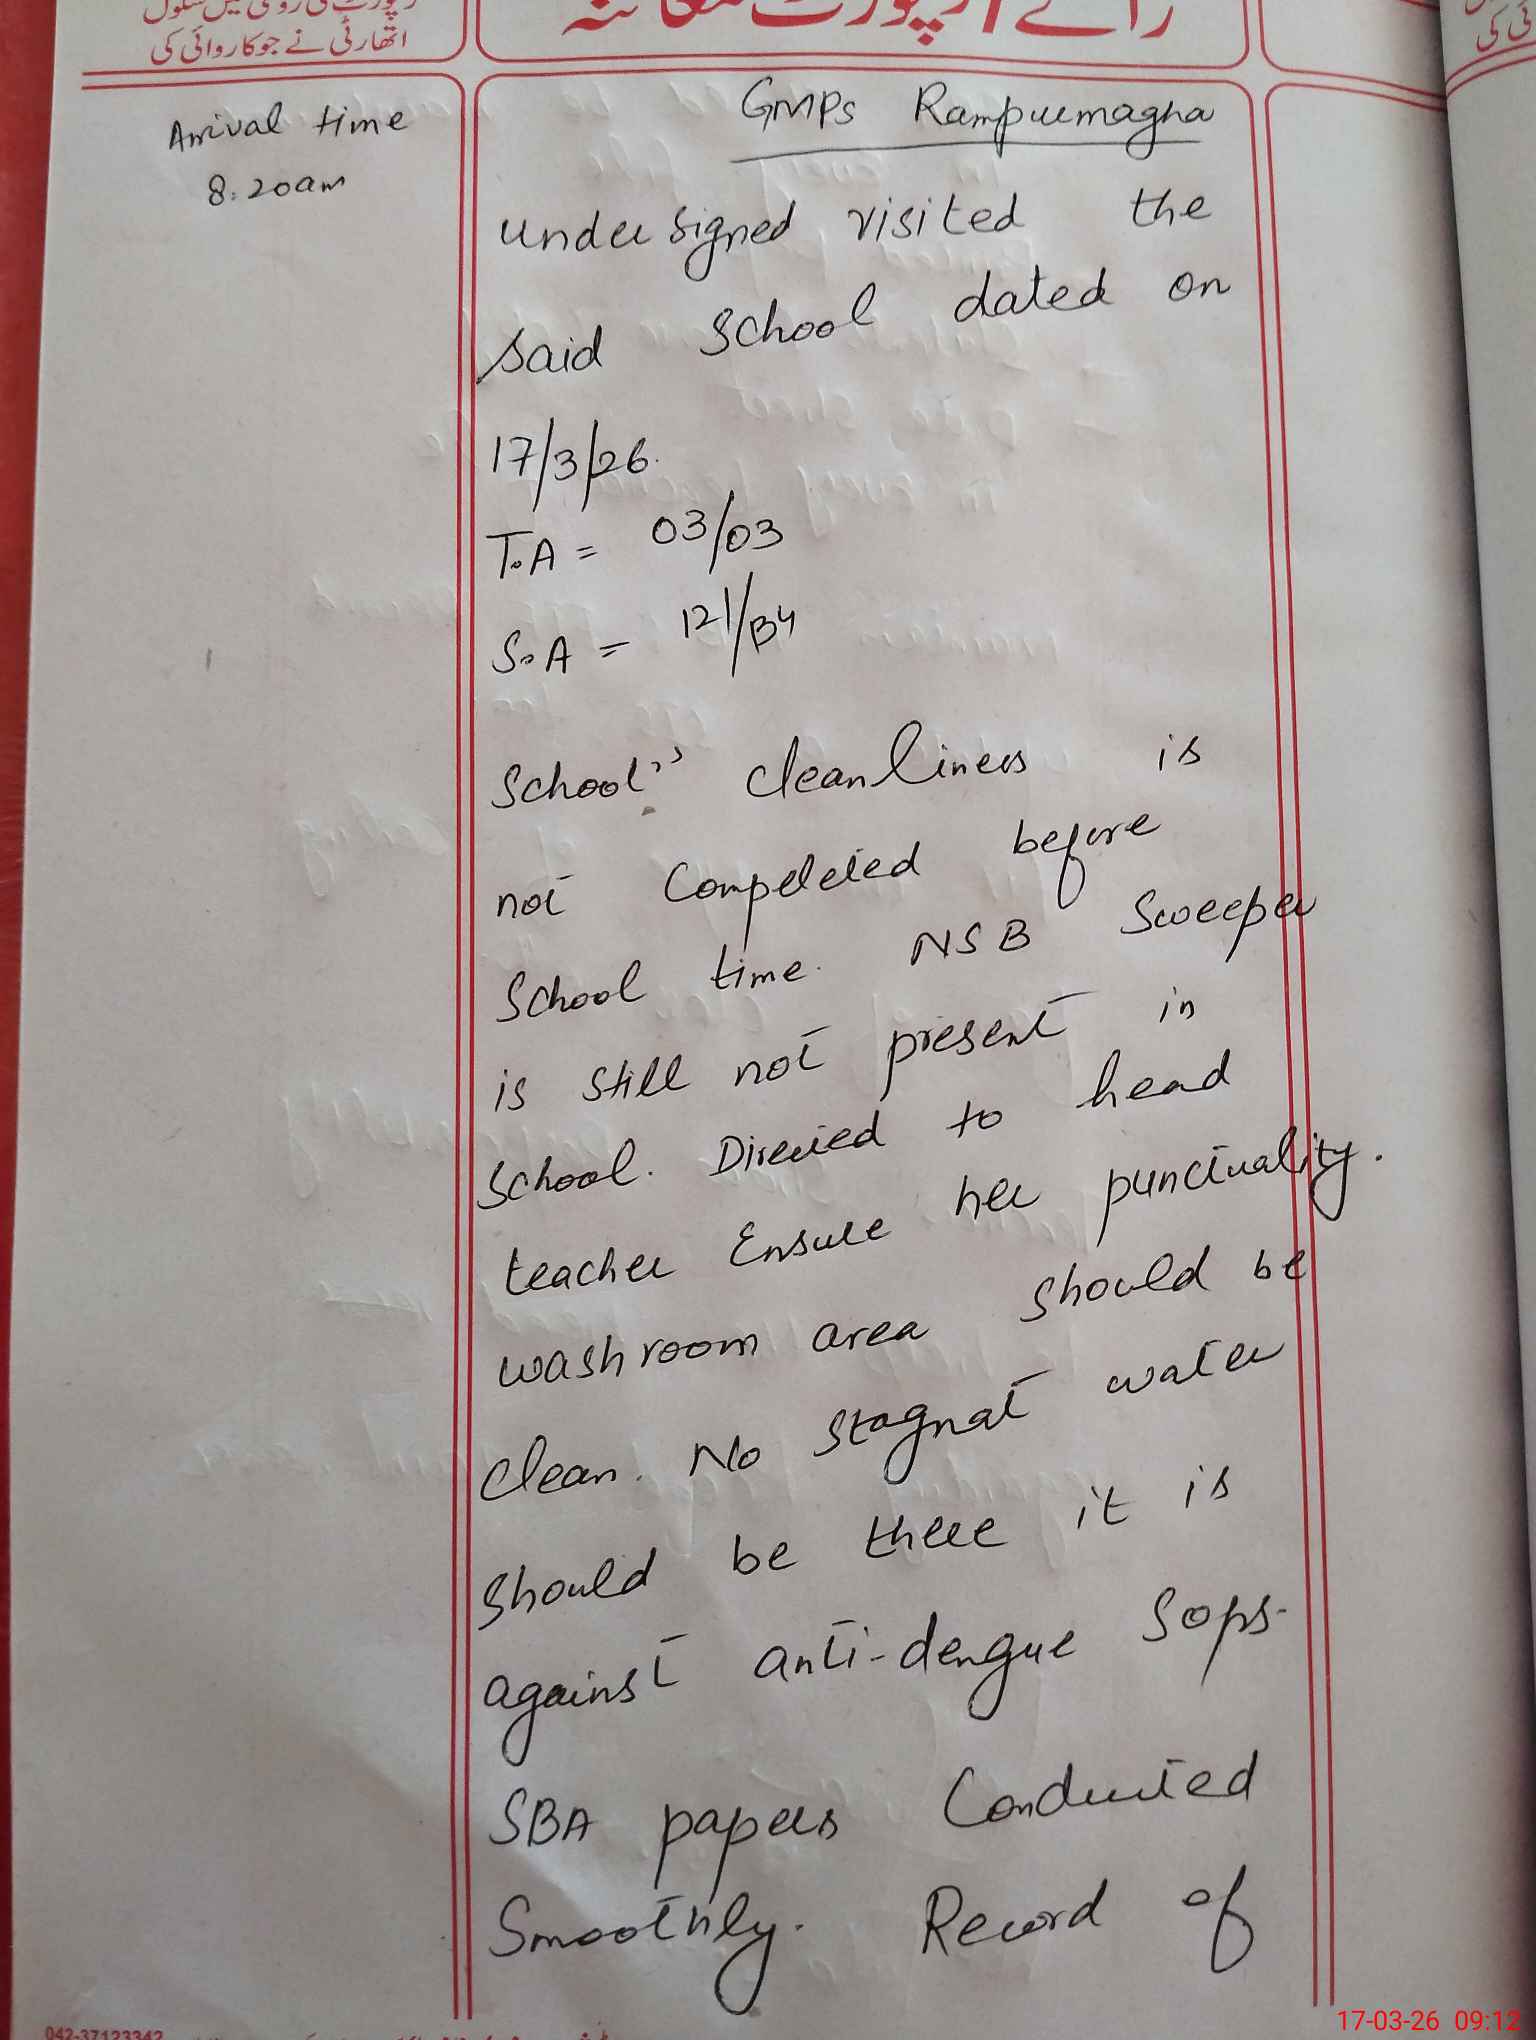 رپورٹ کی روشنی میں سکول
اتھارٹی نے جو کاروائی کی
رائے / رپورٹ معائنہ
Arrival time
8:20am
GMPS Rampuremagha
undersigned visited the
said School dated on
17/3/26.
T.A = 03/03
S.A = 121/134
School's cleanliness is
not Compeleted before
School time. NSB Sweeper
is still not present in
School. Directed to head
teacher Ensure her punctuality.
washroom area should be
clean. No stagnat water
should be there it is
against anti-dengue Sops.
SBA papers Conducted
Smoothly. Record of
042-37123342
17-03-26 09:12